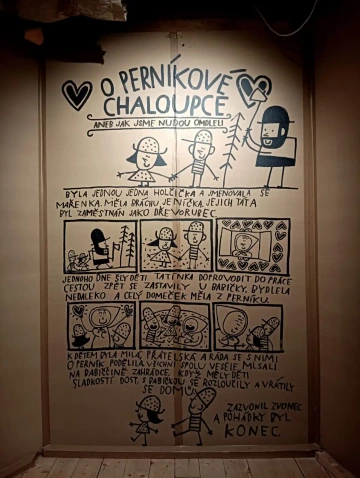 O PERNÍKOVÉ
CHALOUPCE
ANEB JAK JSME NUDOU OMDLELI
BYLA JEDNOU JEDNA HOLČIČKA A JMENOVALA SE
MAŘENKA. MĚLA BRÁCHU JENÍČKA. JEJICH TÁTA
BYL ZAMĚSTNÁN JAKO DŘEVORUBEC.
JEDNOHO DNE ŠLY DĚTI TATÍNKA DOPROVODIT DO PRÁCE
CESTOU ZPĚT SE ZASTAVILY U BABIČKY. BYDLELA
NEDALEKO A CELÝ DOMEČEK MĚLA Z PERNÍKU.
K DĚTEM BYLA MILÁ, PŘÁTELSKÁ A RÁDA SE S NIMI
O PERNÍK PODĚLILA. VŠICHNI SPOLU VESELE MLSALI
NA BABIČČINĚ ZAHRÁDCE. KDYŽ MĚLY DĚTI
SLADKOSTÍ DOST, S BABIČKOU SE ROZLOUČILY A VRÁTILY
SE DOMŮ.
ZAZVONIL ZVONEC
A POHÁDKY BYL
KONEC